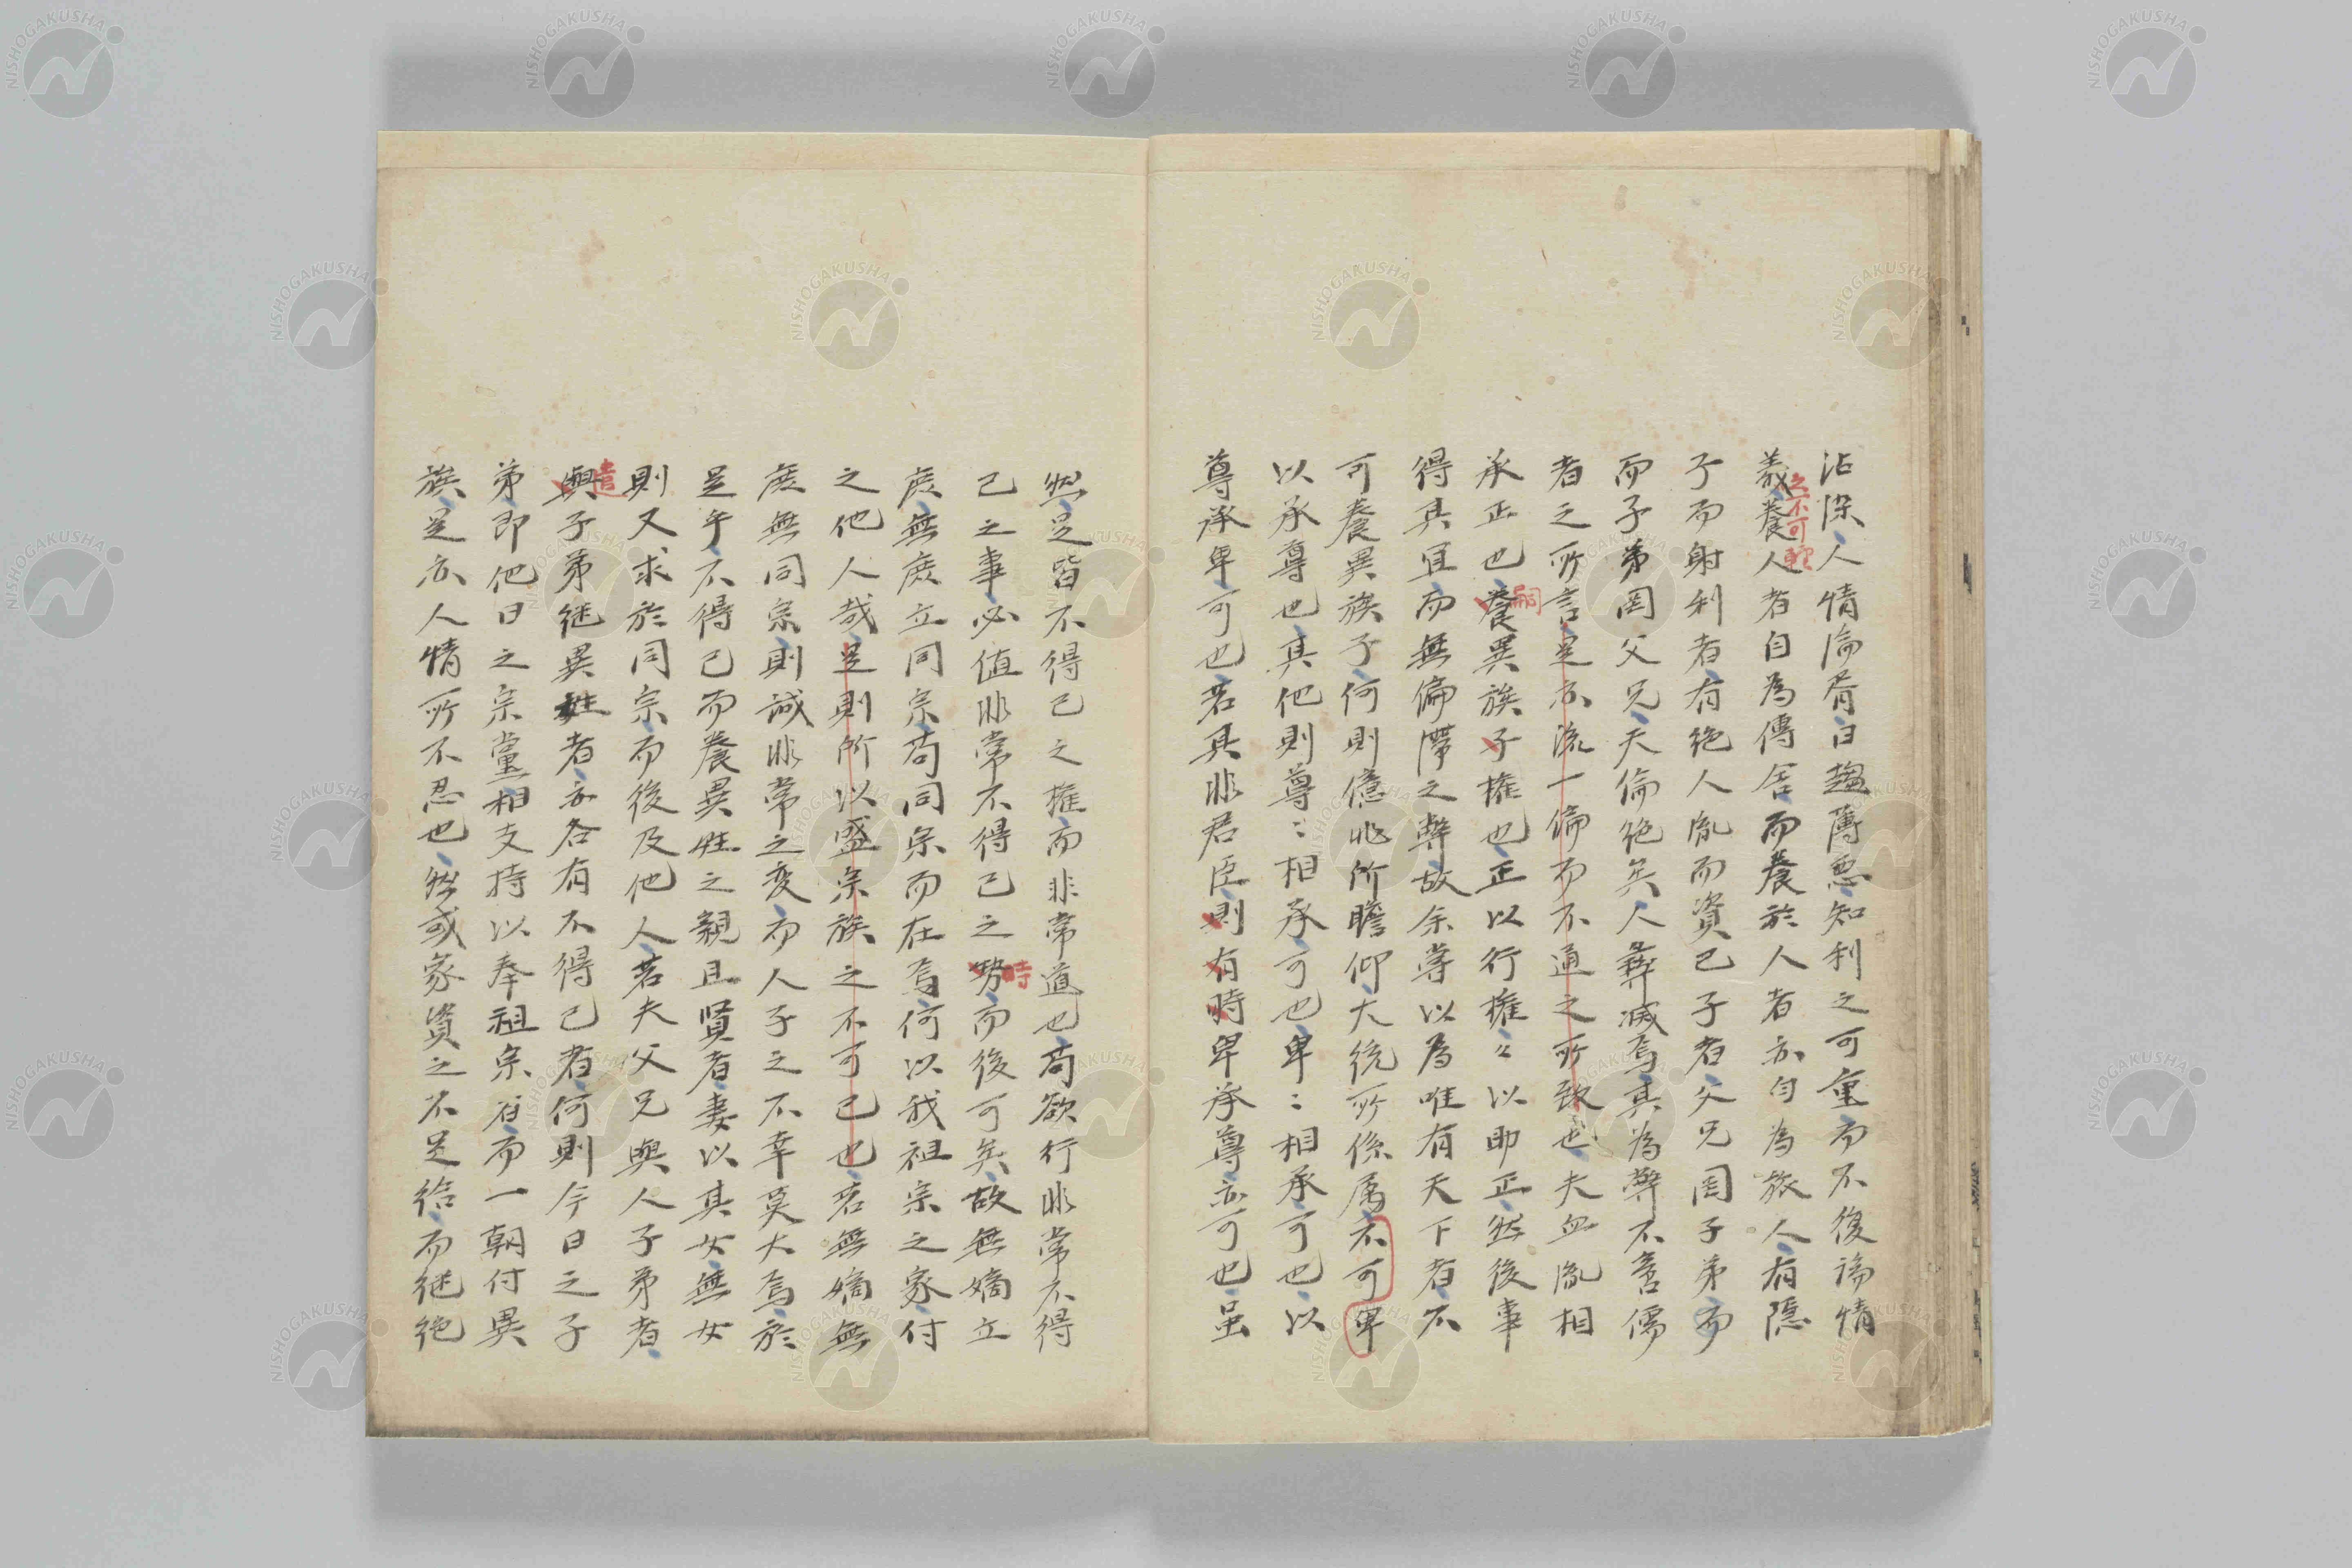 沾深人情淪胥日趨薄惡知利之可重而不復論情
義之不可
養人者自為傳舍而養於人者亦自為旅人有隠
子而射利者有絶人胤而資己子者父兄罔子弟而
而子弟罔父兄天倫絶矣人彝滅焉其為弊不啻儒
者之所言是亦流一偏而不通之所致也夫血胤相
承正也養嗣異族子権也正以行権々以即正然後事
得其宜而無偏滞之弊故余嘗以為唯有天下者不
可養異族子何則億兆所瞻仰大統所係属不可卑
以承尊也其他則尊〻相承可也卑〻相承可也以
尊承卑可也若其非君臣則有時卑承尊亦可也虽
然是皆不得已之権而非常道也苟欲行非常不得
已之事必値非常不得已之勢時而後可矣故無嫡立
庶無庶立同宗苟同宗而在焉何以我祖宗之家付
之他人哉是則所以盛宗族之不可已也若無嫡無
庶無同宗則誠非常之変而人子之不幸莫大焉於
是乎不得已而養異姓之親且賢者妻以其女無女
則又求於同宗而後及他人若夫父兄與人子弟者
與遣子弟継異姓者亦各有不得已者何則今日之子
弟即他日之宗黨相支持以奉祖宗者而一朝付異
族是亦人情所不忍也然或家資之不足給而継絶
NISHOGAKUSHA